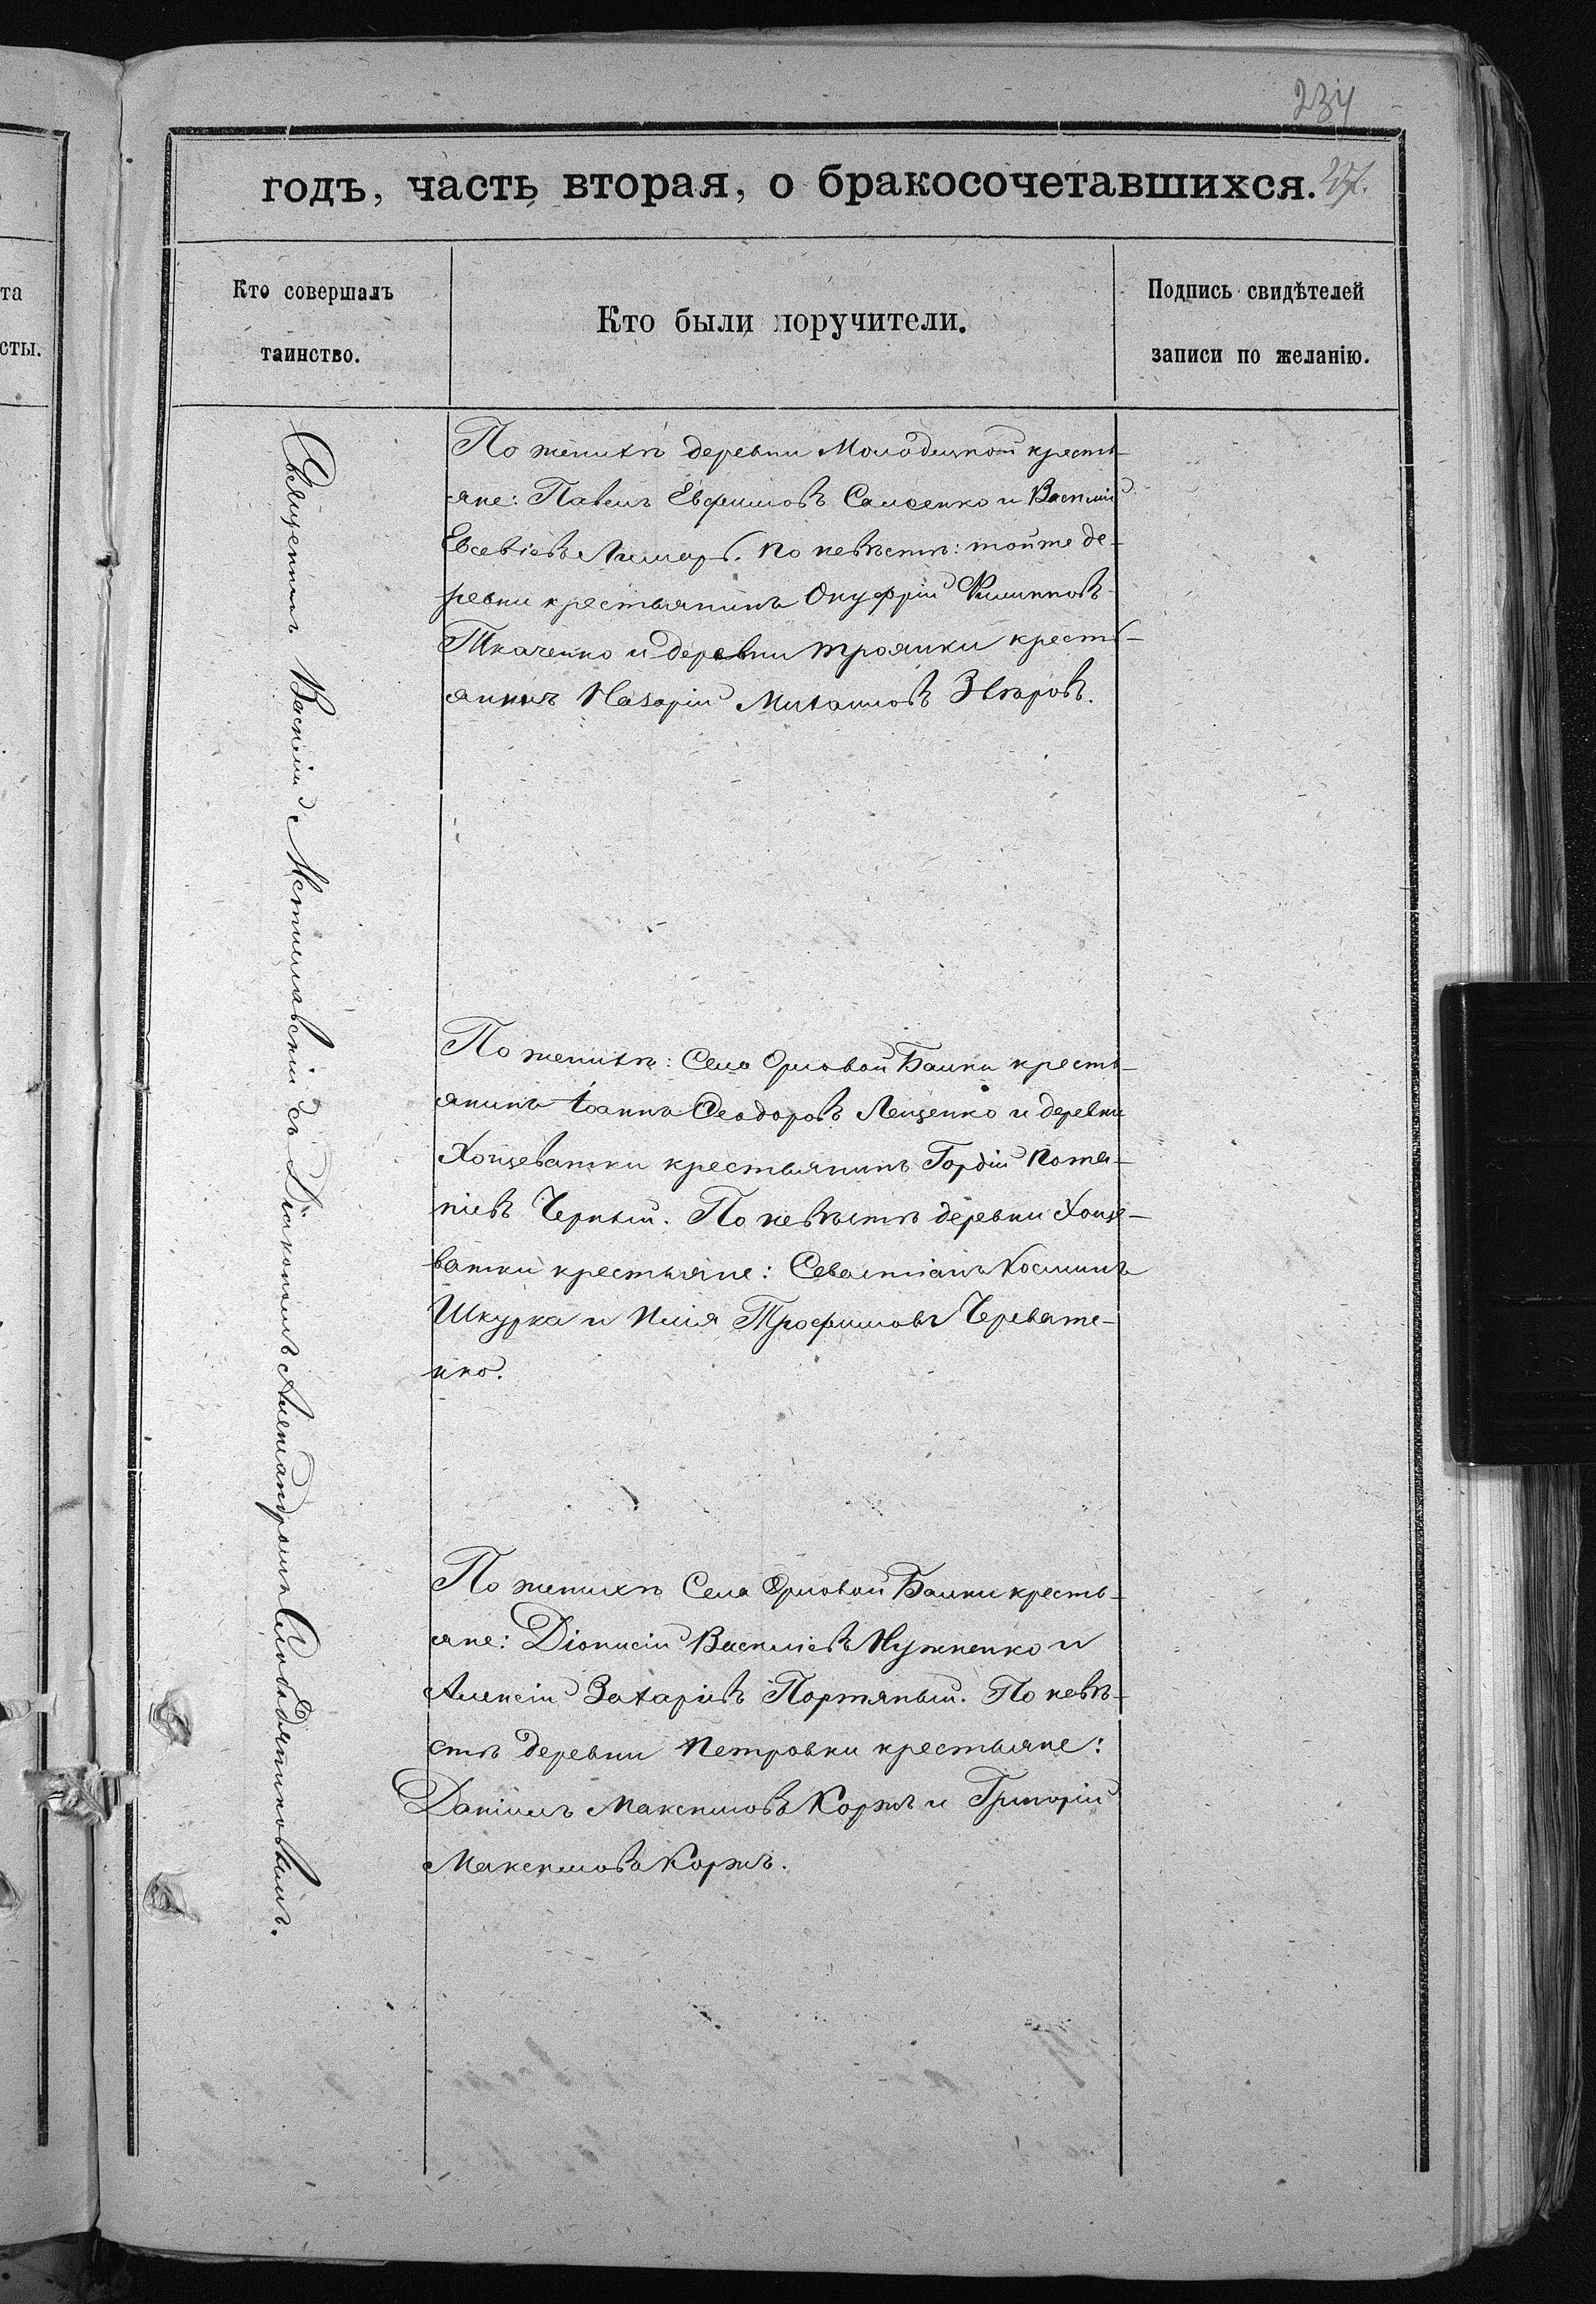 234
годъ, часть вторая, о бракосочетавшихся.
Кто совершалъ
таинство.
Кто были поручители.
Подпись свидѣтелей
записи по желанію.
та
сты.
Священникъ Василій Мстиславскій съ Діакономъ Александромъ
По женихѣ деревни Молодецкой кресть-
яне: Павелъ Евфимовъ Самсенко и Василій
Евсевіевъ Лимарь. По невѣстѣ: тойже де-
ревни крестьянинъ Онуфрій Филипповъ
Ткаченко и деревни Троянки кресть-
янинъ Назарій Михаиловъ Звѣровъ.
По женихѣ: Села Орловой Балки кресть-
янинъ Іоаннъ Ѳеодоровъ Лещенко и деревни
Хощеватки крестьянинъ Гордій Пота-
піевъ Черный. По невѣстѣ деревни Хоще-
ватки крестьяне: Севастіанъ Косминъ
Шкурка и Илія Трофимовъ Черевате-
нко.
По женихѣ Села Орловой Балки кресть-
яне: Діонисій Василіевъ Нужненко и
Алексій Захаріевъ Портяный. По невѣ-
стѣ деревни Петровки крестьяне:
Даніилъ Максимовъ Коржъ и Григорій
Максимовъ Коржъ.